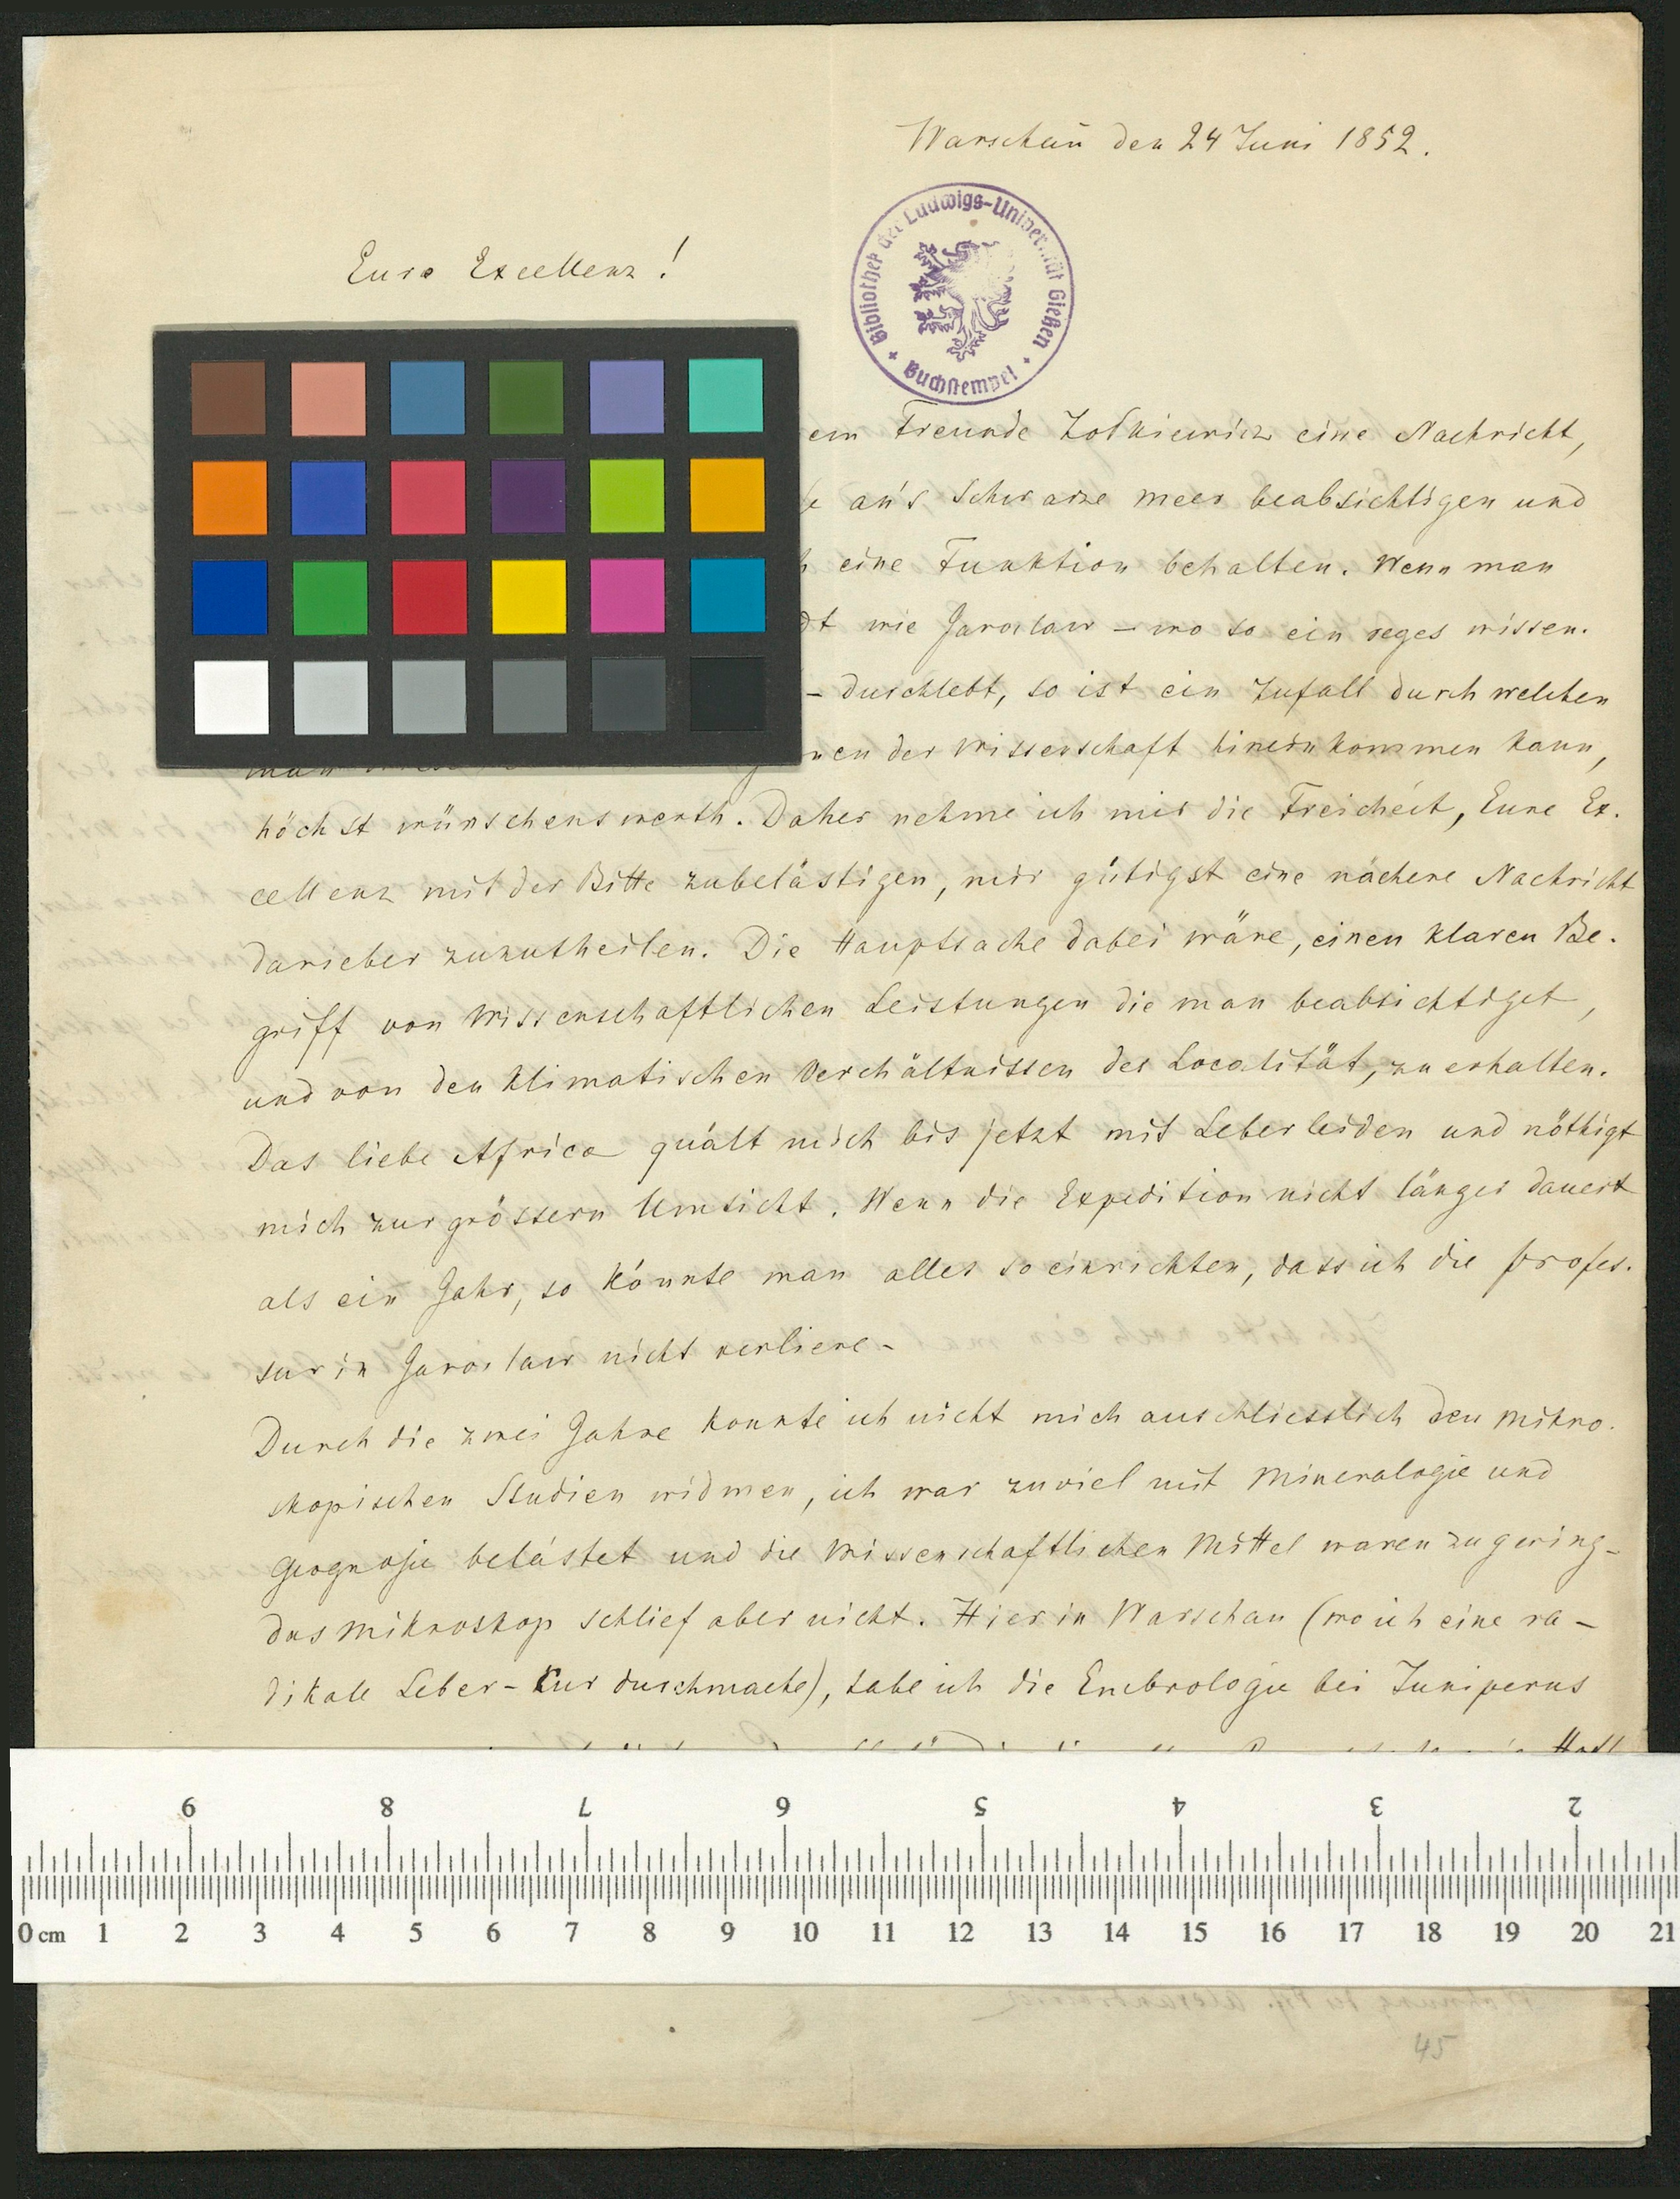 Warschau den 24 Juni 1852.
Bibliothek der Ludwigs-Universität Gießen
+ Buchstempel +
Eure Excellenz!
Freunde Zolkiewicz eine Nachricht,
an's Schwarze Meer beabsichtigen und
eine Funktion behalten. Wenn man
wie Jaroslaw – wo so ein reges wissen.
– durchlebt, so ist ein Zufall durch welchen
der Wissenschaft hineinkommen kann,
höchst wünschenswerth. Daher nehme ich mir die Freicheit, Eure Ex.
cellenz mit der Bitte zubelästigen, mir gütigst eine nächere Nachricht
darieber zuzutheilen. Die Hauptsache dabei wäre, einen klaren Be.
griff von Wissenschaftlichen Leistungen die man beabsichtiget,
und von den klimatischen Verchältnissen der Localität, zu erhalten.
Das liebe Africa quält mich bis jetzt mit Leberleiden und nöthigt
mich zur grössern Umsicht. Wenn die Expedition nicht länger dauert
als ein Jahr, so könnte man alles so einrichten, dass ich die profes.
sur in Jaroslaw nicht verliere –
Durch die zwei Jahre konnte ich nicht mich auschliesslich den mikro.
skopischen Studien widmen, ich war zuviel mit Mineralogie und
Geognosie belästet und die Wissenschaftlichen Mittel waren zu gering –
das Mikroskop schlief aber nicht. Hier in Warschau (wo ich eine ra –
dikale Leber-Kur durchmache), habe ich die Embrologie bei Juniperus
9 8 7 6 5 4 3 2
0 cm 1 2 3 4 5 6 7 8 9 10 11 12 13 14 15 16 17 18 19 20 21
45